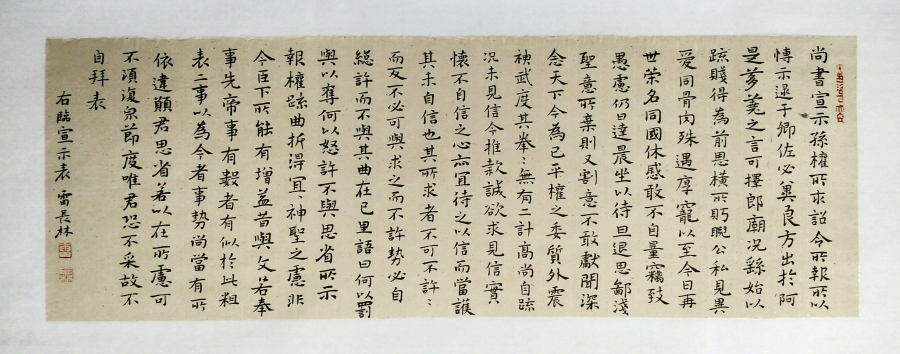 尚書宣示孫權所求詔令所報所以
博示逮于卿佐必冀良方出於阿
是芻蕘之言可擇郎廟況繇始以
疏賤得為前恩橫所眄睨公私見異
愛同骨肉殊遇厚寵以至今日再
世榮名同國休感敢不自量竊致
愚慮仍日達晨坐以待旦退思鄙淺
聖意所棄則又割意不敢獻聞深
念天下今為已平權之委質外震
神武度其拳〻無有二計高尚自疏
況未見信今推款誠欲求見信實
懷不自信之心亦宜待之以信而當護
其未自信也其所求者不可不許〻
而反不必可與求之而不許勢必自
絕許而不與其曲在己里語曰何以罰
與以奪何以怒許不與思省所示
報權疏曲折得宜〻神聖之慮非
今臣下所能有增益昔與文若奉
事先帝事有數者有似於此粗
表二事以為今者事勢尚當有所
依違願君思省若以在所慮可
不須復節度唯君恐不采故不
自拜表
右臨宣示表 雷長林